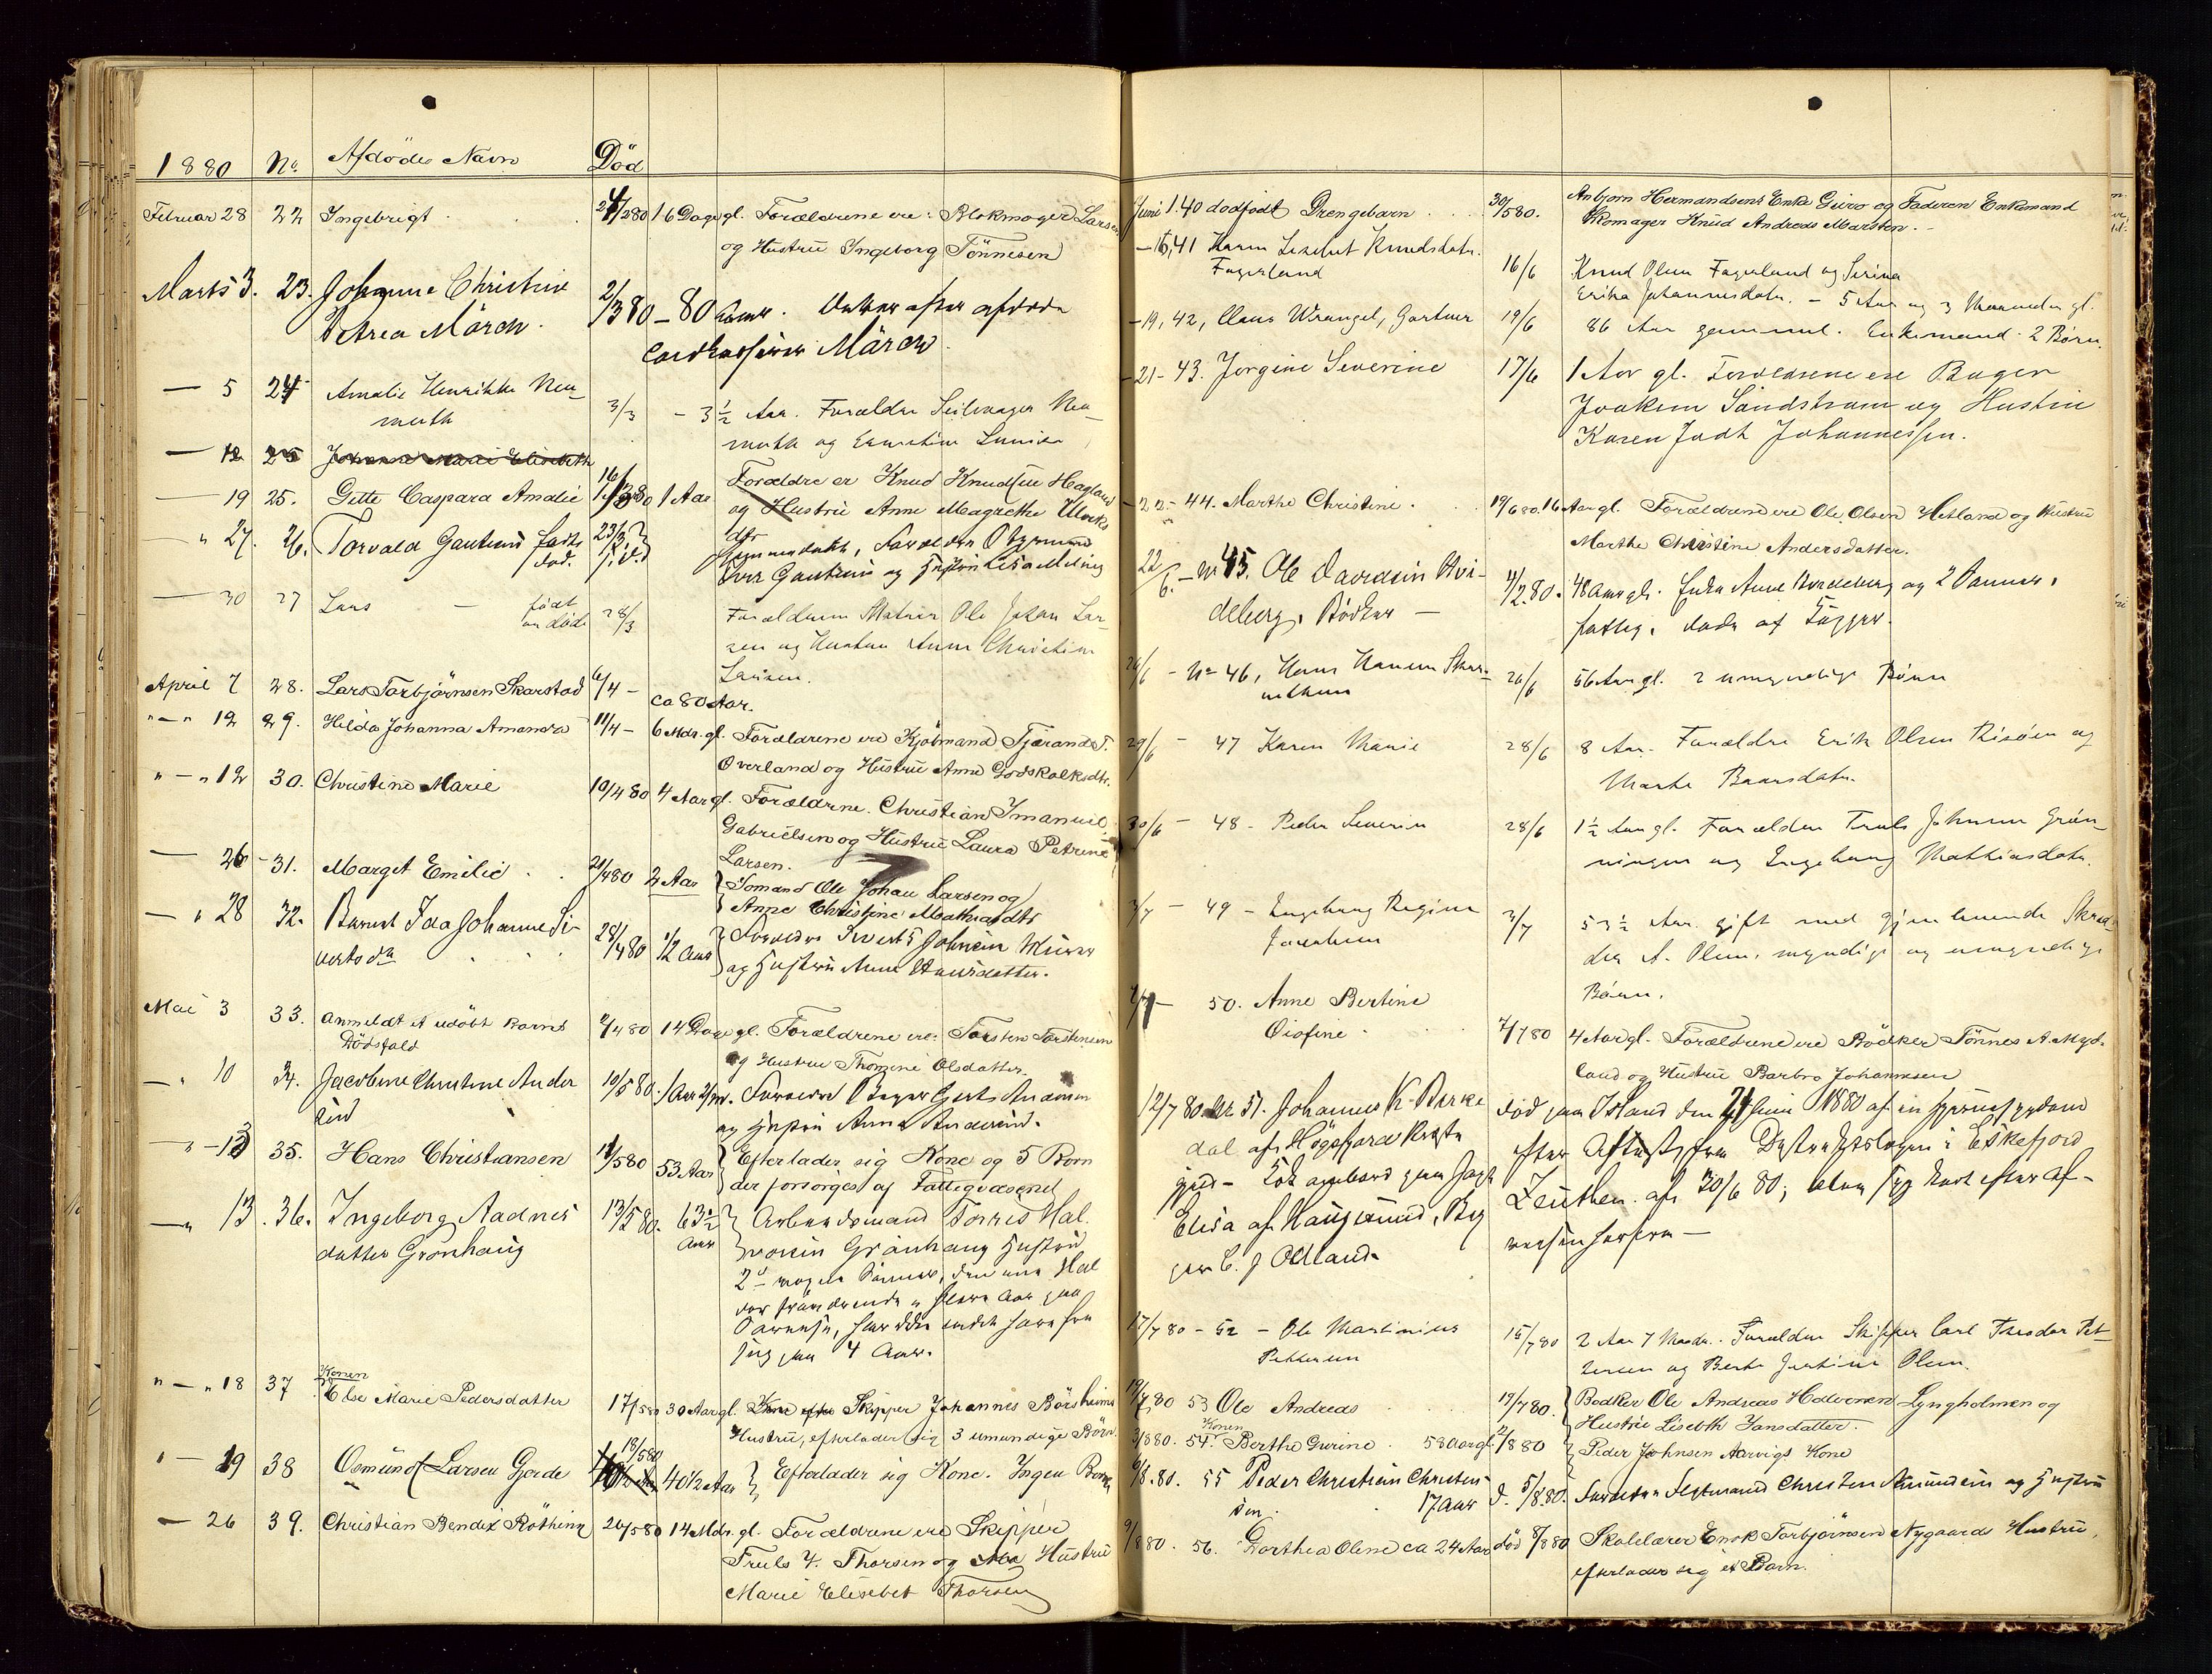 1880 No. Afdödes Navn Död
Februar 28 22 Ingebrigt 280 16 Dage gl. Forældrene ere: Blokmager Larsen
og Hustru Ingeborg Tönnesen
Marts 3. 23. Johanne Christine 2/3 80 - 80 Aar. Enke efter afdøde
Petrea Mörch. Mörch
— 5 24 Amalie Henrikke Neu-
muth 3/3 - 3 1/2 Aar. Forældre Seilmager Neu-
muth og
— 12 25 Johanne Marie Elisebeth
— 19 25. Gitte Caspara Amalie 16/3 80 1 Aar Forældre er Knud Knudsen Hagland
og Hustru Anne Magrethe
— " 27. 26. Torvald Gautun født
død. 23/3 Forældre
Gautun og Hustru
— 30 27 Lars — født
døde 28/3 Forældrene Matros Ole Johan Lar-
sen og Hustru Anne Christine
Larsen.
April 7 28. Lars Torbjørnsen Skarstad 6/4 - ca 80 Aar.
"—" 12 29. Hilda Johanna Amanda 11/4 - 6 Mdr. gl. Forældrene ere Kjöbmand Tjerand T.
Overland og Hustru Anne Godskalksdtr.
" — " 12 30. Christine Marie 10/4 80 4 Aar gl. Forældrene. Christian Imanuel
Gabrielsen og Hustru Laura Petrine
Larsen.
— 26 - 31. Marget Emilie 21/4 80 2 Aar Sømand Ole Johan Larsen og
Anne Christine Mathiasdtr
— " 28 32. Barnet Ida Johanne Si-
vertsda 28/4 80 1/2 Aar Forældre Sivert Johnsen
og Hustru Anne Hansdatter.
Mai 3 33. Anmeldt et udöbt Barns
Dödsfald 2/4 80 14 Dage gl. Forældrene ere: Torsten Torstensen
og Hustru Thomine Olsdatter.
— " 10 34. Jacobine Christine Ander
sen 10/5 80. 1 Aar Forældre Bager Gert Andersen
og Hustru Anna Andersen.
— " — 13 35. Hans Christiansen 11/5 80 53 Aar Efterlader sig Kone og 5 Børn
der forsørges af Fattigvæsenet
—" 13. 36. Ingeborg Aadnes
datter Grönhaug 13/5 80. 63 1/2
Aar Arbeidsmand Torris Hal
vorsen Grönhaug Hustru
2 Sønner, den ene Hal
vor fraværende i flere Aar paa
ikke hørt fra
sig paa 4 Aar.
" — " 18 37 Konen
Else Marie Pedersdatter 17/5 80 30 Aar gl. Skipper Johannes Börsheims
Hustru, efterlader sig 3 umundige Börn.
" — 19 38 Osmund Larsen Gjerde 18/5 80 40 1/2 Aar Efterlader sig Kone. Ingen Børn
— 26 39. Christian Bendix Röthing 20/5 80 14 Mdr. gl. Forældrene ere Skipper
Truls T. Thorsen og Hustru
Marie Elisebet Thorsen
Juni 1. 40 dødfødt Drengebarn 30/5 80. Anbjørn Hermandsens Enke Guro og Faderen Enkemand
Skomager Knud Andreas Marsten.
— 16, 41 Karen Lisebet Knudsdatr.
Fagerland 16/6 Knud Olsen Fagerland og Serina
Erika Johannesdatr. - 5 Aar og 3 Maaneder gl.
— 19, 42, Claus Wrangel, Gartner 19/6 86 Aar gammel. Enkemand. 2 Børn.
— 21 - 43. Jorgine Severine 17/6 1 Aar gl. Forældrene ere Bager
Joakim Sandstrøm og Hustru
Karen Johannessen.
— 22 - 44. Marthe Christine. 19/6 80. 16 Aar gl. Forældrene ere Ole Olsen Hetland og Hustru
Marthe Christine Andersdatter.
22/6 - No 45. Ole Davidsen Hvi-
deberg, Bødker — 80. 48 Aar gl. Enke Anne Hvideberg og 2 Sønner,
fattig.
26/6 - No 46, Hans Hansen
26/6 56 Aar gl. 2 umyndige Børn
29/6 - 47 Karen Marie 28/6 8 Aar. Forældre Erik Olsen Risøen og
Marthe Baarsdatr.
30/6 - 48 - Peder Severin 28/6 1 1/2 Aar gl. Forældre Truls Johnsen Grøn-
ningen og Ingeborg Mathiasdatr.
3/7 - 49 - Ingeborg Regine
Jacobsen 3/7 53 1/2 Aar. gift med gjenlevende Skræd-
der A. Olsen. myndige og umyndige
Børn.
7/7 - 50. Anne Bertine
Oisfine. 7/7 80 4 Aar gl. Forældrene ere Bödker Tönnes A. Myd-
land og Hustru Barbro Johannesen
12/7 80. Nr 51. Johannes K. Birke
dal af Høgsfjord
Kok ombord paa Jagt
Elisa af Haugesund,
C. J. Odland. död paa Island den 21 Juni 1880 af en
efter Attest fra i Eskefjord
Zeuthen. af 30/6 80;
17/7 80 - 52 - Ole Martinius
Pettersen 15/7 80 2 Aar 7 Maadr. Forældre Skipper Carl Theodor Pet-
tersen og Berte Justine Olsen.
19/7 80 53 Ole Andreas 19/7 80. Bødker Ole Andreas Halvorsen Lyngholmen og
Hustru Lisebth Jansdatter.
3/8 80. 54. Konen
Berthe Gurine. 58 Aar gl. 2/8 80 Peder Johnsen Aarvigs Kone
6/8. 80. 55 Peder Christian Christen-
sen. 17 Aar d. 5/8 80. Forældre Christen Amundsen og Hustru
9/8 80. 56. Dorthea Olene ca 24 Aar død 8/8 80 Skolelærer Enok Torbjørnsen Nygaards Hustru,
efterlader sig et Barn.